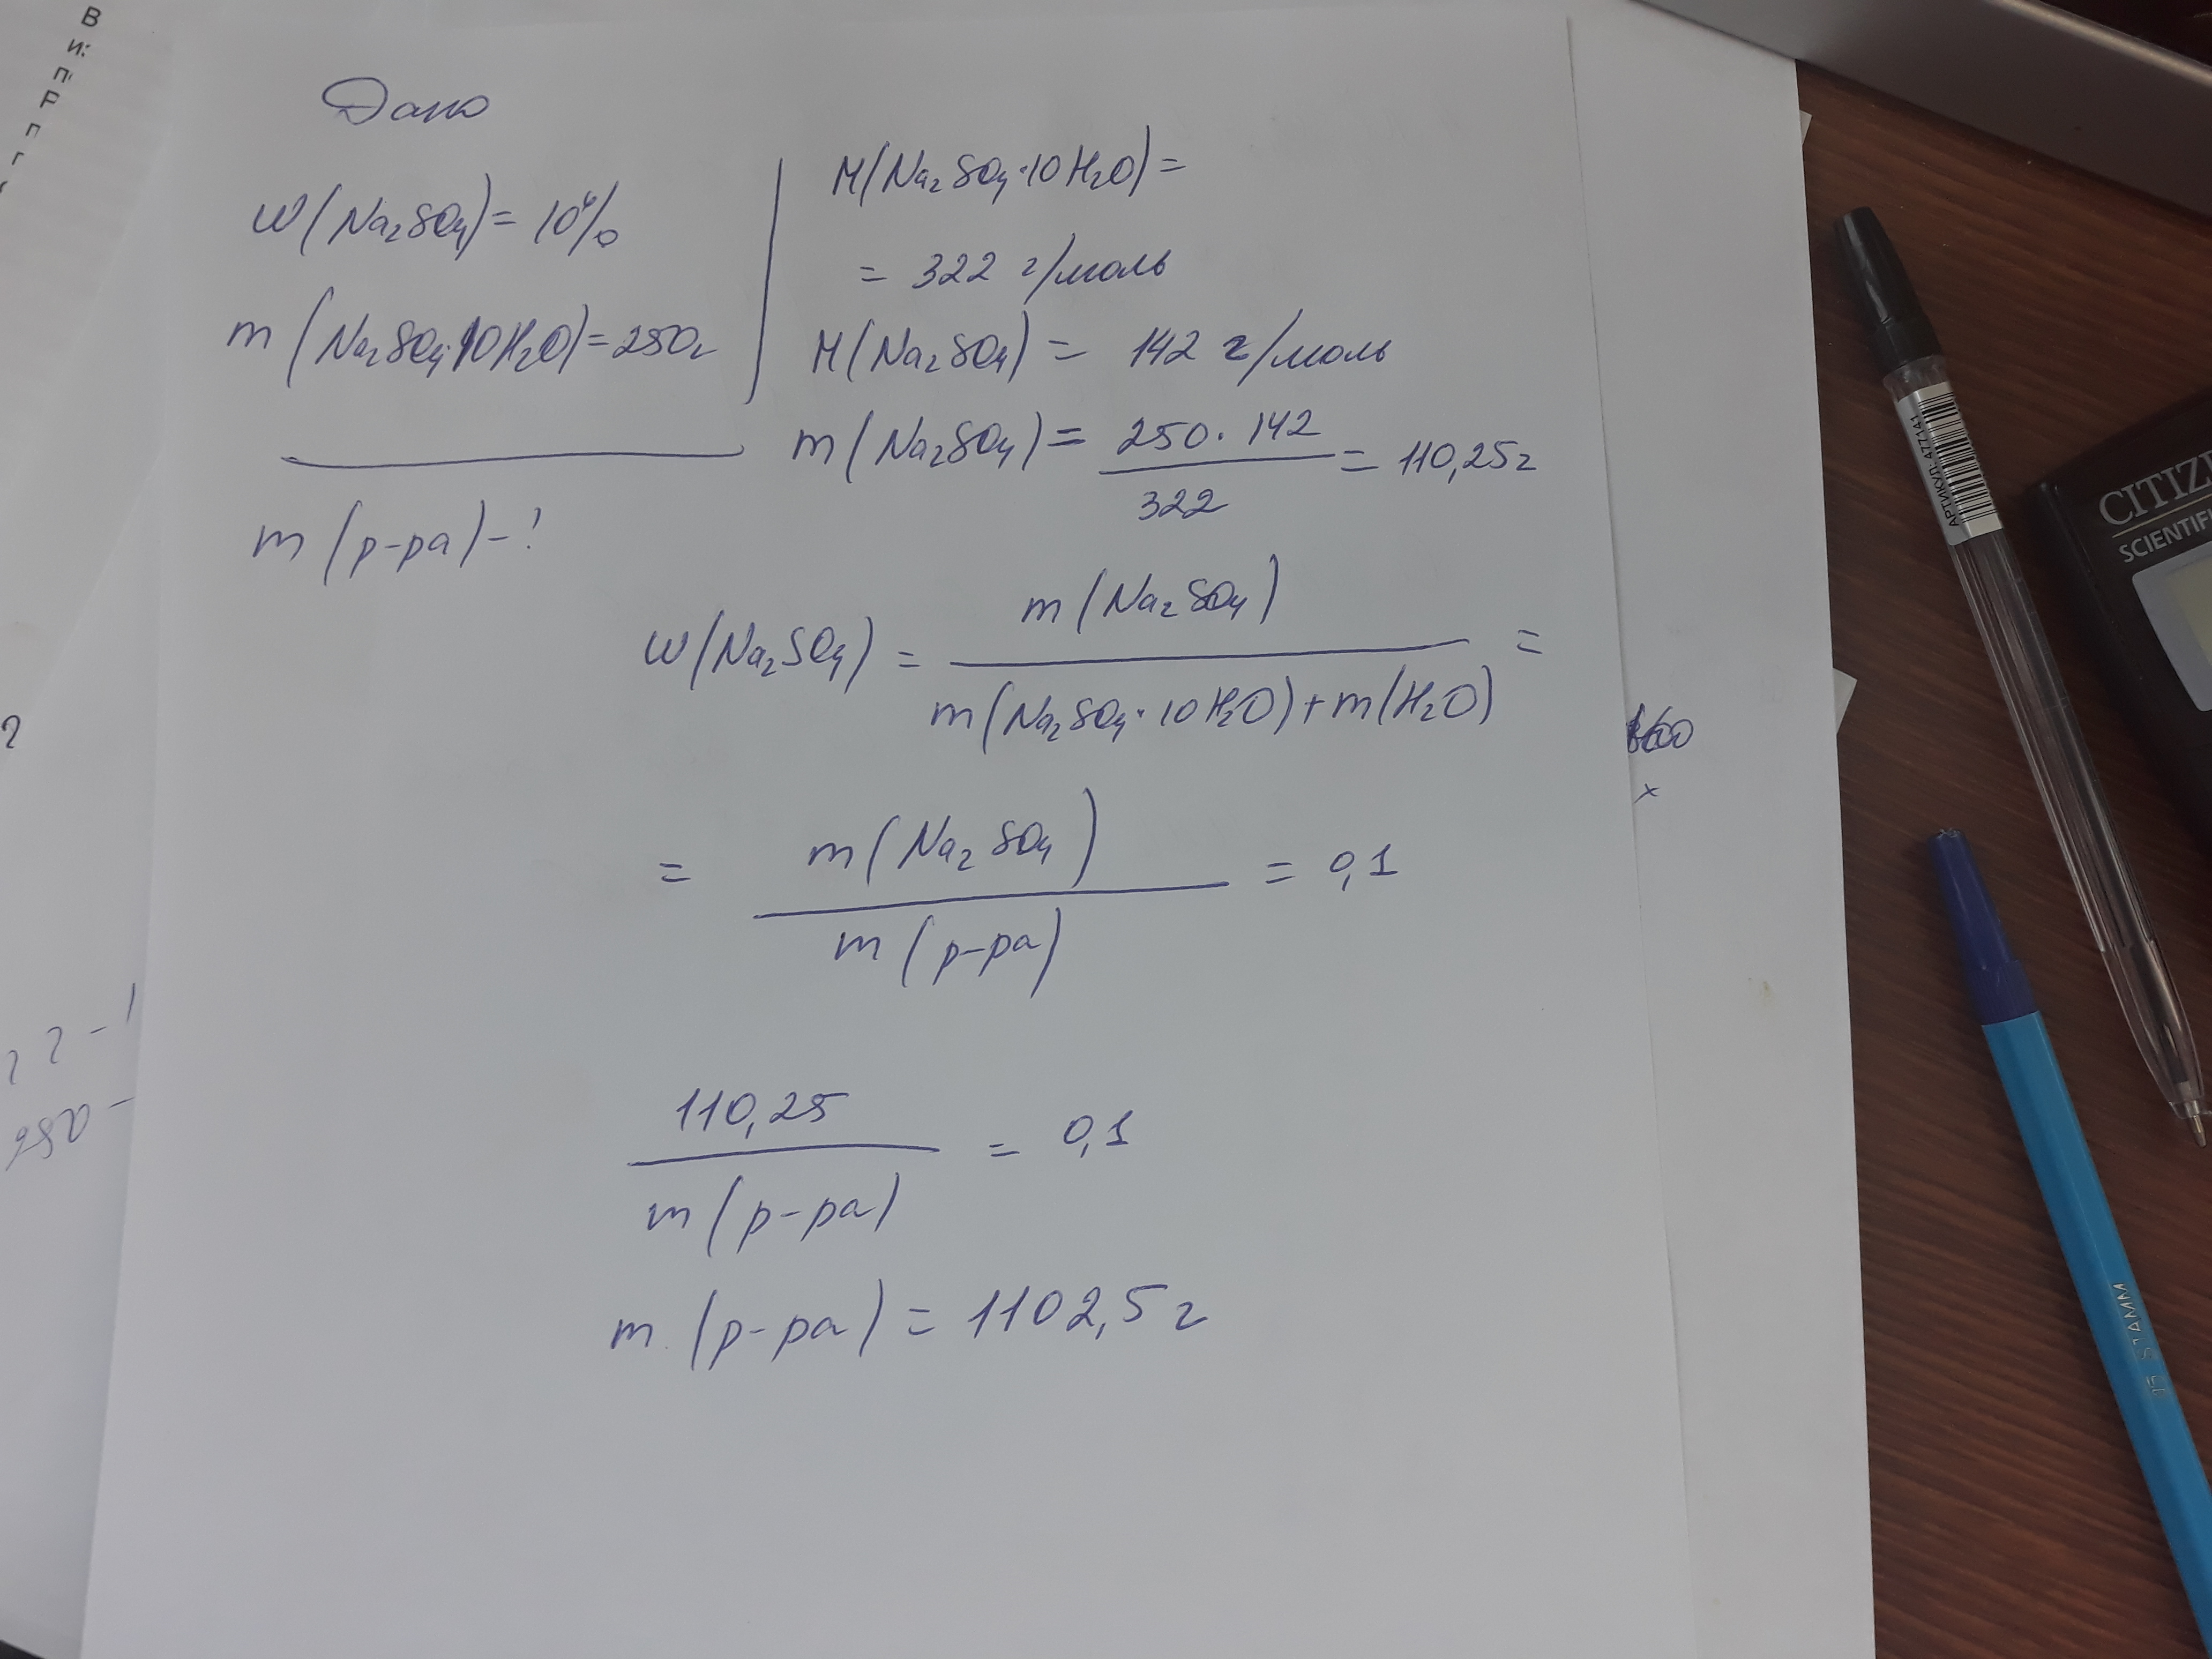 Дано
W(Na₂SO₄) = 10%
m(Na₂SO₄·10H₂O) = 250г
m(р-ра) - ?
M(Na₂SO₄·10H₂O) =
= 322 г/моль
M(Na₂SO₄) = 142 г/моль
m(Na₂SO₄) = 250·142 / 322 = 110,25г
W(Na₂SO₄) = m(Na₂SO₄) / m(Na₂SO₄·10H₂O) + m(H₂O) =
= m(Na₂SO₄) / m(р-ра) = 0,1
110,25 / m(р-ра) = 0,1
m(р-ра) = 1102,5 г
CITIZ
SCIENTIFI
АРТИКУЛ: 477141
STAMM